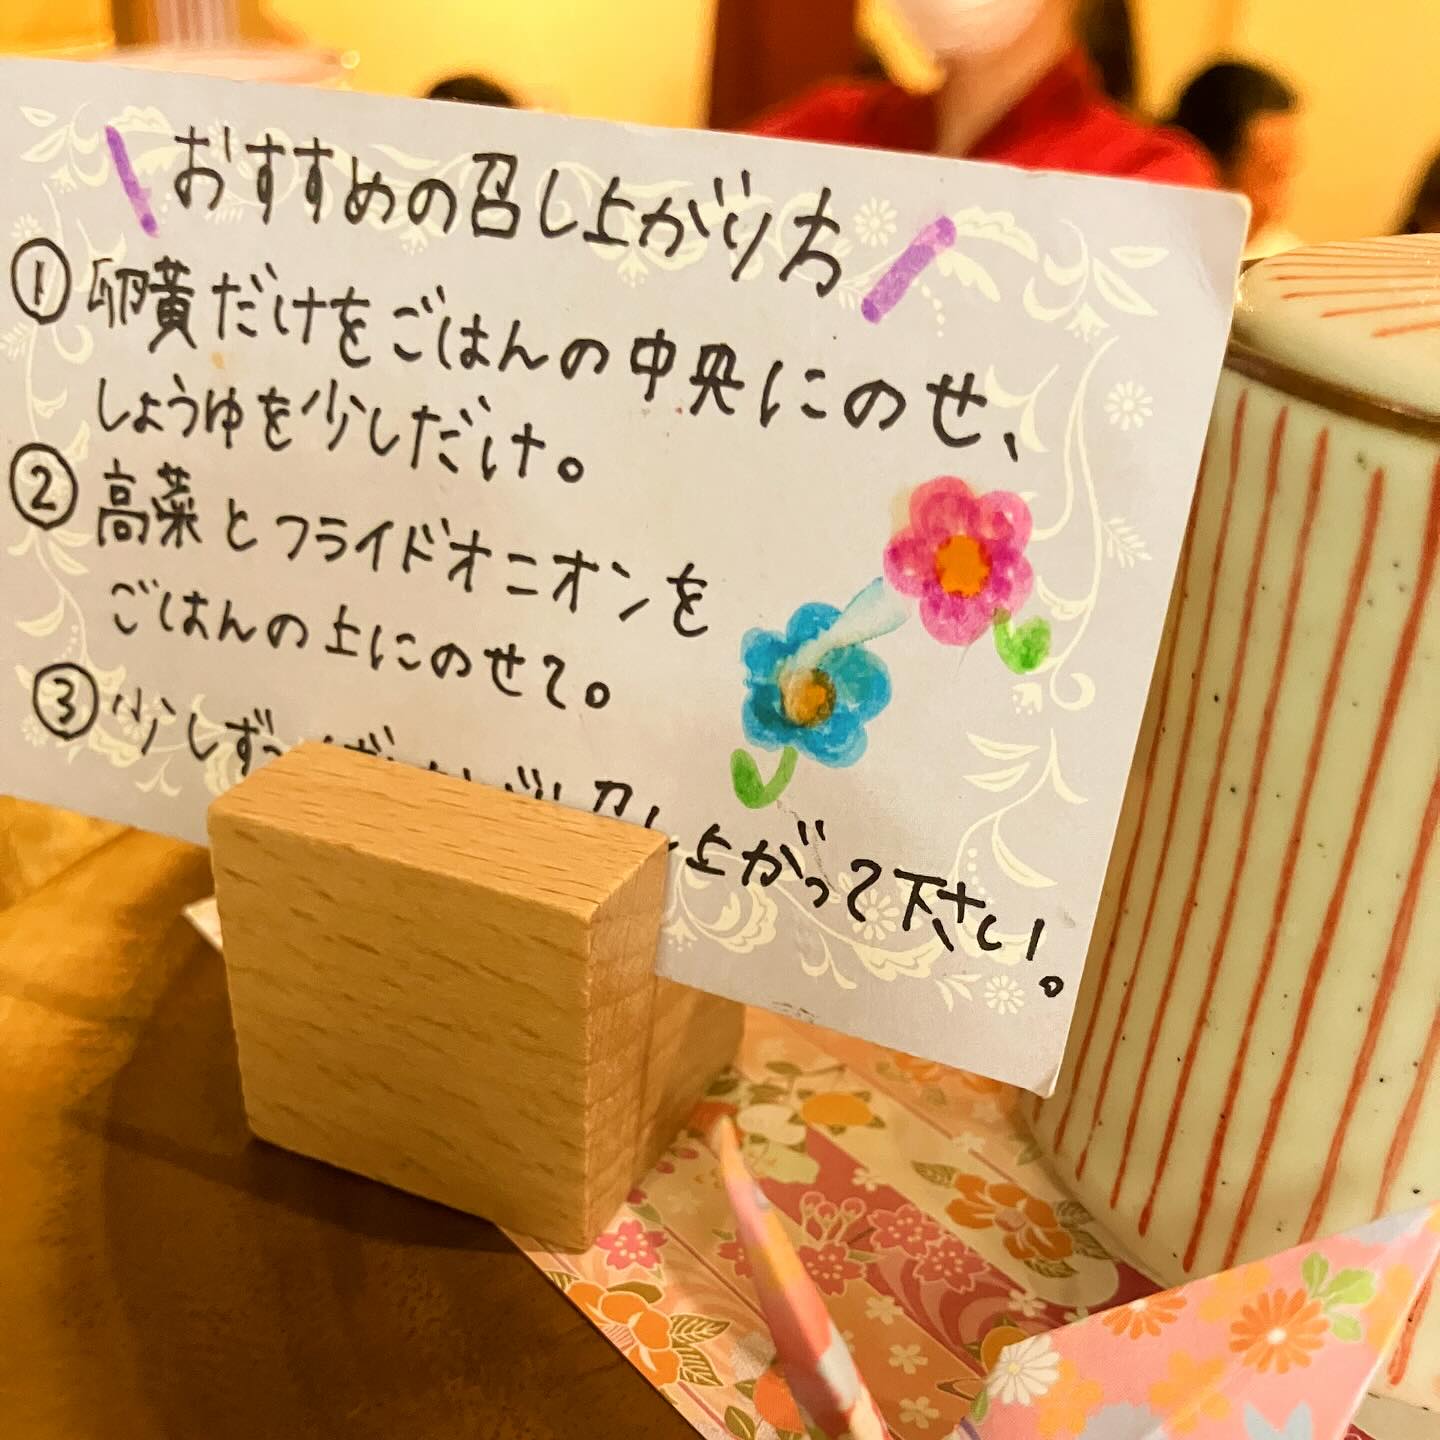 おすすめの召し上がり方
① 卵黄だけをごはんの中央にのせ、
しょうゆを少しだけ。
② 高菜とフライドオニオンを
ごはんの上にのせて。
③ 少しずつ 召し上がって下さい。